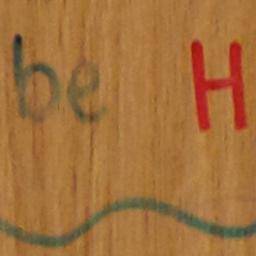 be H